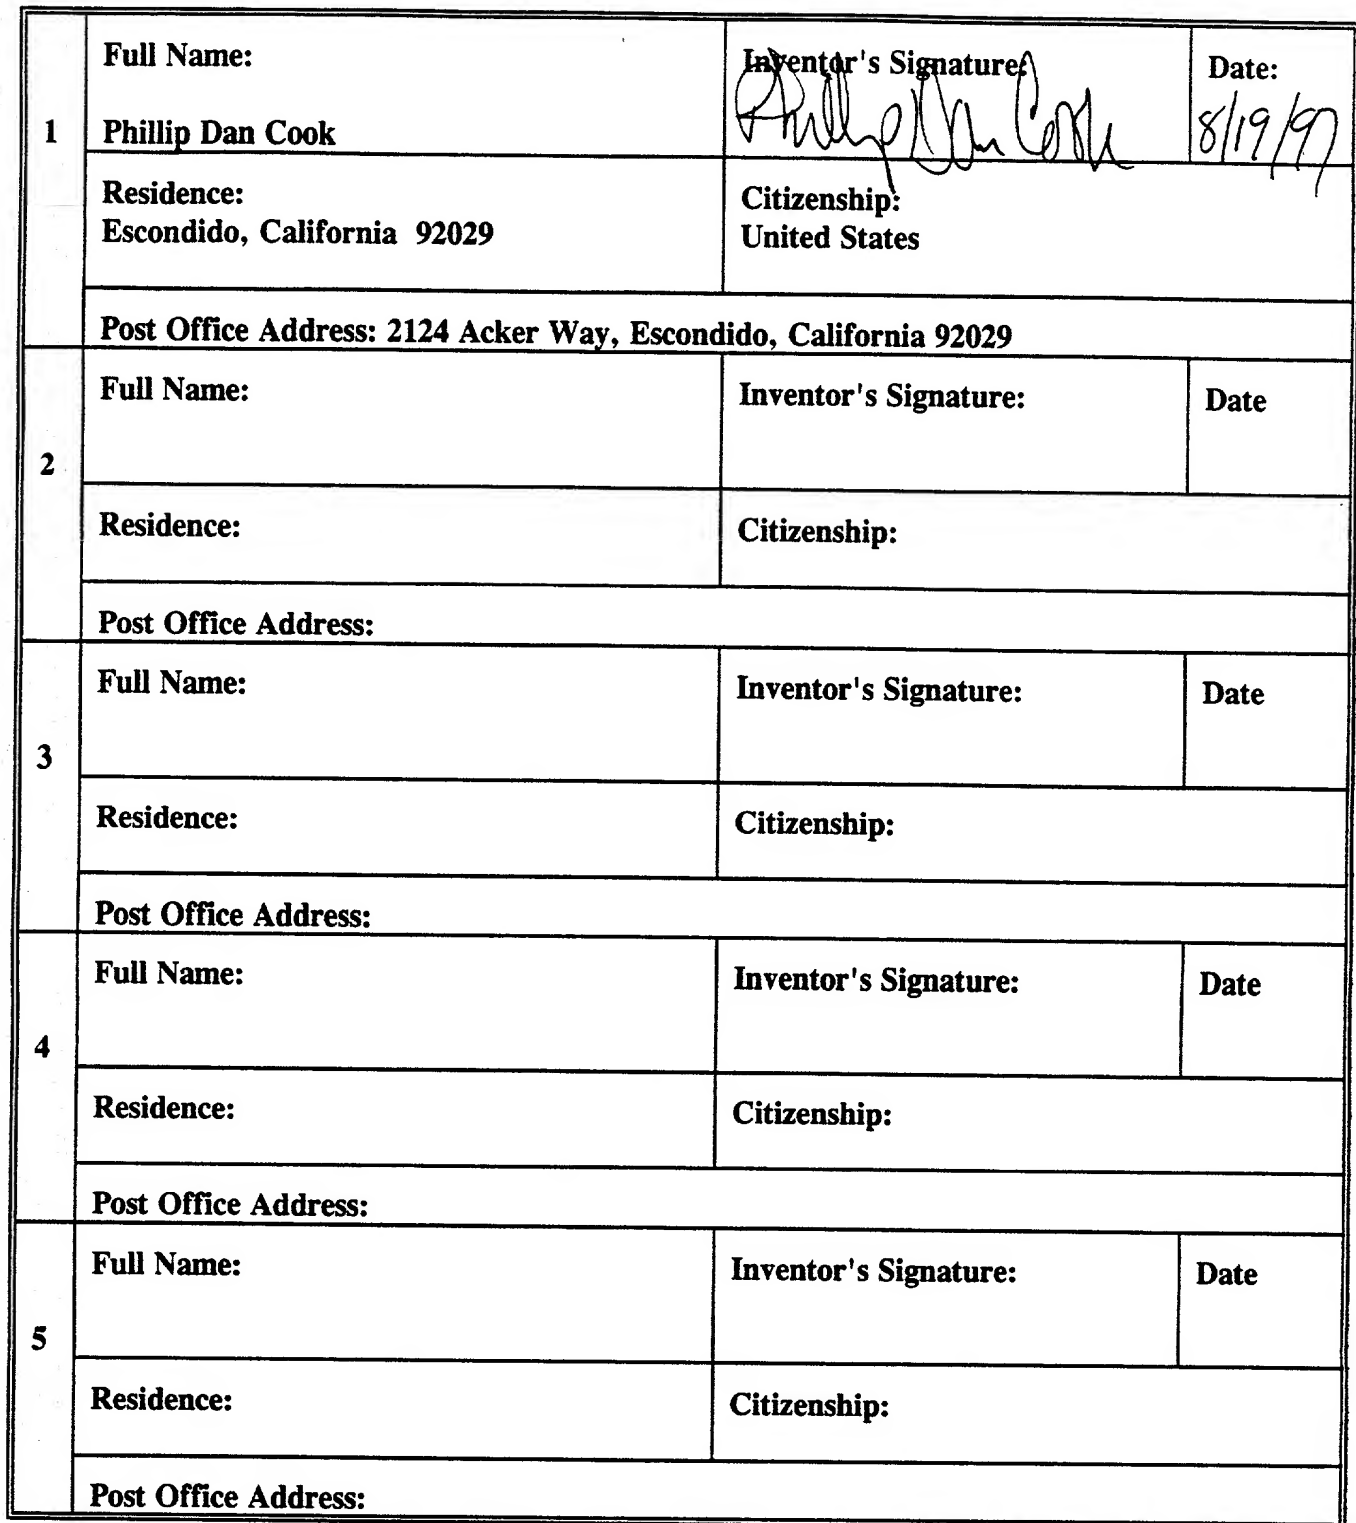 1
Full Name:
Phillip Dan Cook
Inventor's Signature:
Phillip Dan Cook
Date:
8/19/97
Residence:
Escondido, California 92029
Citizenship:
United States
Post Office Address: 2124 Acker Way, Escondido, California 92029
2
Full Name:
Inventor's Signature:
Date
Residence:
Citizenship:
Post Office Address:
3
Full Name:
Inventor's Signature:
Date
Residence:
Citizenship:
Post Office Address:
4
Full Name:
Inventor's Signature:
Date
Residence:
Citizenship:
Post Office Address:
5
Full Name:
Inventor's Signature:
Date
Residence:
Citizenship:
Post Office Address: